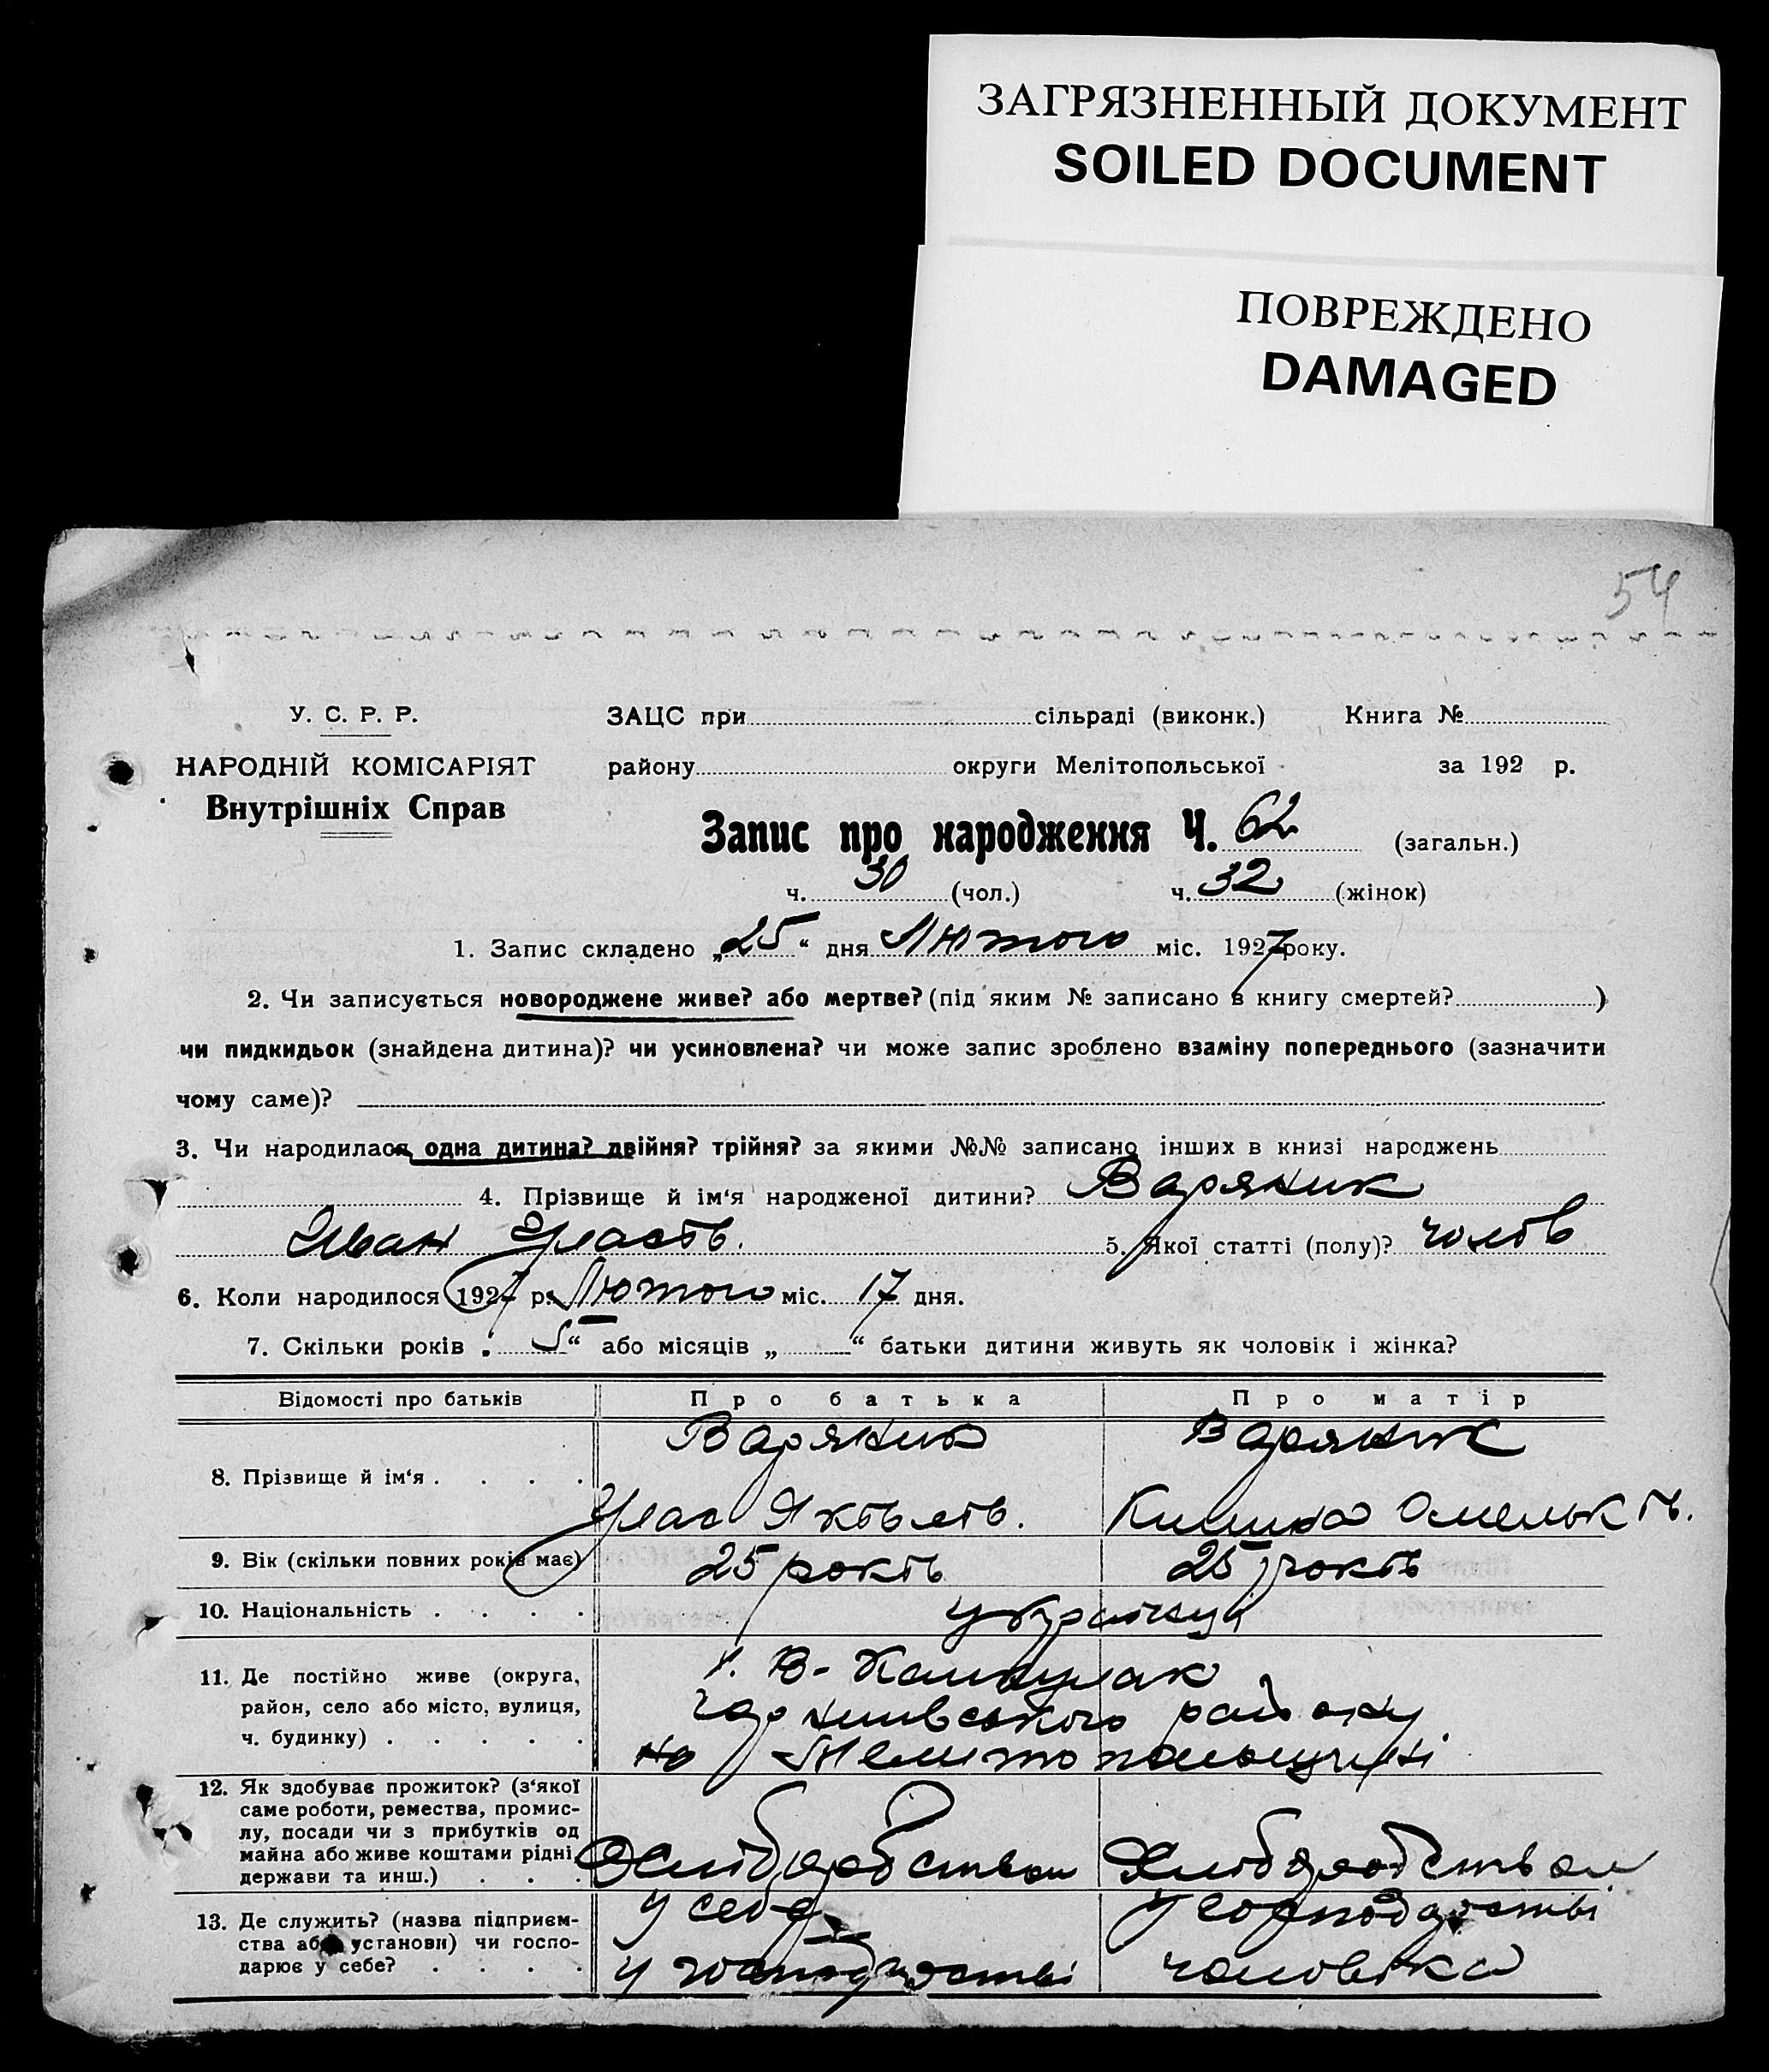 ЗАГРЯЗНЕННЫЙ ДОКУМЕНТ
SOILED DOCUMENT
ПОВРЕЖДЕНО
DAMAGED
54
У. С. Р. Р.
НАРОДНІЙ КОМІСАРІЯТ
Внутрішніх Справ
ЗАЦС при сільраді (виконк.) Книга №
району округи Мелітопольської за 192 р.
Запис про народження Ч. 62 (загальн.)
ч. 30 (чол.) ч. 32 (жінок)
1. Запис складено „25“ дня Лютого міс. 1927 року.
2. Чи записується новороджене живе? або мертве? (під яким № записано в книгу смертей? )
чи пидкидьок (знайдена дитина)? чи усиновлена? чи може запис зроблено взаміну попереднього (зазначити
чому саме)?
3. Чи народилася одна дитина? двійня? трійня? за якими №№ записано інших в книзі народжень
4. Прізвище й ім‘я народженої дитини? Варяник
Иван Уласов. 5. Якої статті (полу)? чолов
6. Коли народилося 1927 р. Лютого міс. 17 дня.
7. Скільки років „5“ або місяців „ “ батьки дитини живуть як чоловік і жінка?
Відомості про батьків Про батька Про матір
8. Прізвище й ім‘я . . . . Варяник Варяник
Улас Яковлев.
9. Вік (скільки повних років має) 25 років 25 років
10. Національність . . . . українці
11. Де постійно живе (округа,
район, село або місто, вулиця,
ч. будинку) . . . . .
район
на Мелитопольщині
12. Як здобуває прожиток? (з‘якої
саме роботи, ремества, промис-
лу, посади чи з прибутків од
майна або живе коштами рідні,
держави та инш.) . . .
Хліборобством Хліборобством
13. Де служить? (назва підприєм-
ства або установи) чи госпо-
дарює у себе? . . . .
у себе у господарстві
у господарстві чоловіка